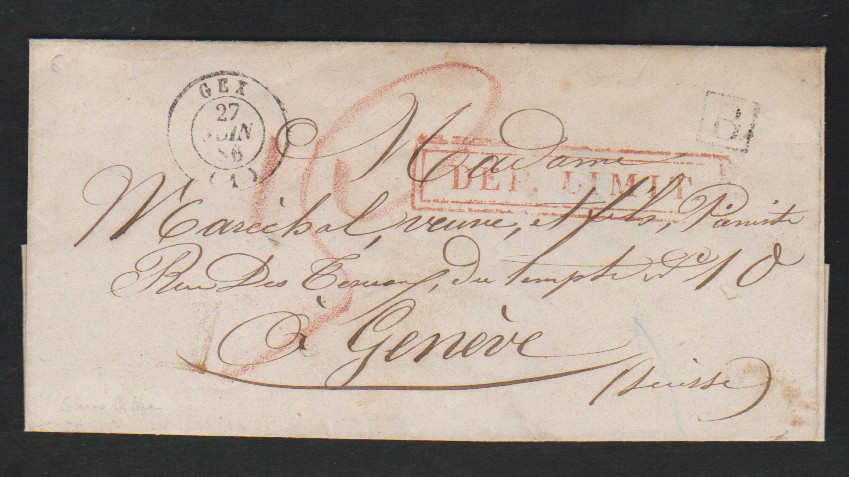 GEX
27
JUIN
56
(1)
B
DEP. LIMIT.
Madame
Maréchal, veuve, et fils,
Rue Des du temple No 10
à Genève
(Suisse)